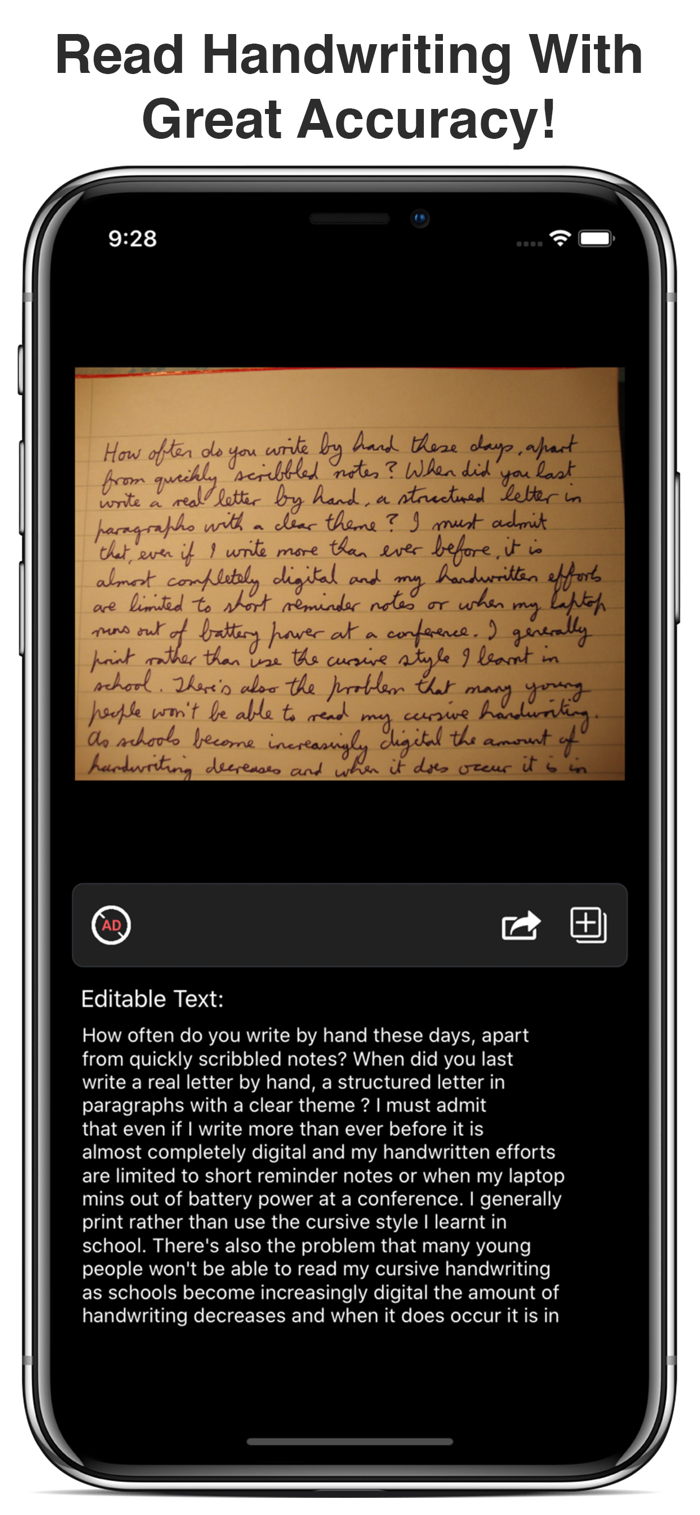 Read Handwriting With
Great Accuracy!
9:28
How often do you write by hand these days, apart
from quickly scribbled notes? When did you last
write a real letter by hand, a structured letter in
paragraphs with a clear theme? I must admit
that, even if I write more than ever before, it is
almost completely digital and my handwritten efforts
are limited to short reminder notes or when my laptop
runs out of battery power at a conference. I generally
print rather than use the cursive style I learnt in
school. There's also the problem that many young
people won't be able to read my cursive handwriting.
As schools become increasingly digital the amount of
handwriting decreases and when it does occur it is in
AD
Editable Text:
How often do you write by hand these days, apart
from quickly scribbled notes? When did you last
write a real letter by hand, a structured letter in
paragraphs with a clear theme ? I must admit
that even if I write more than ever before it is
almost completely digital and my handwritten efforts
are limited to short reminder notes or when my laptop
mins out of battery power at a conference. I generally
print rather than use the cursive style I learnt in
school. There's also the problem that many young
people won't be able to read my cursive handwriting
as schools become increasingly digital the amount of
handwriting decreases and when it does occur it is in